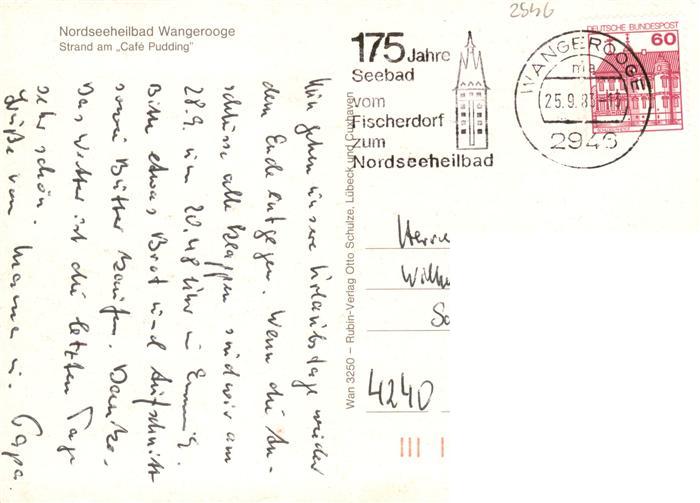 Nordseeheilbad Wangerooge
Strand am „Café Pudding"
Nun gehen unsere Urlaubstage wieder
dem Ende entgegen. Wenn die An-
schlüsse alle klappen sind wir am
28.9. um 20.48 Uhr in Emmerich.
Bitte etwas Brot und Aufschnitt
sowie Butter kaufen. Danke.
Das Wetter ist die letzten Tage
sehr schön.
Grüße von Mama u. Papa
Wan 3250 – Rubin-Verlag Otto Schulze, Lübeck und Cuxhaven
2946
175 Jahre
Seebad
vom
Fischerdorf
zum
Nordseeheilbad
WANGEROOGE
ma
25.9.83
2946
DEUTSCHE BUNDESPOST
60
Herrn
Wilh
Sc
4240